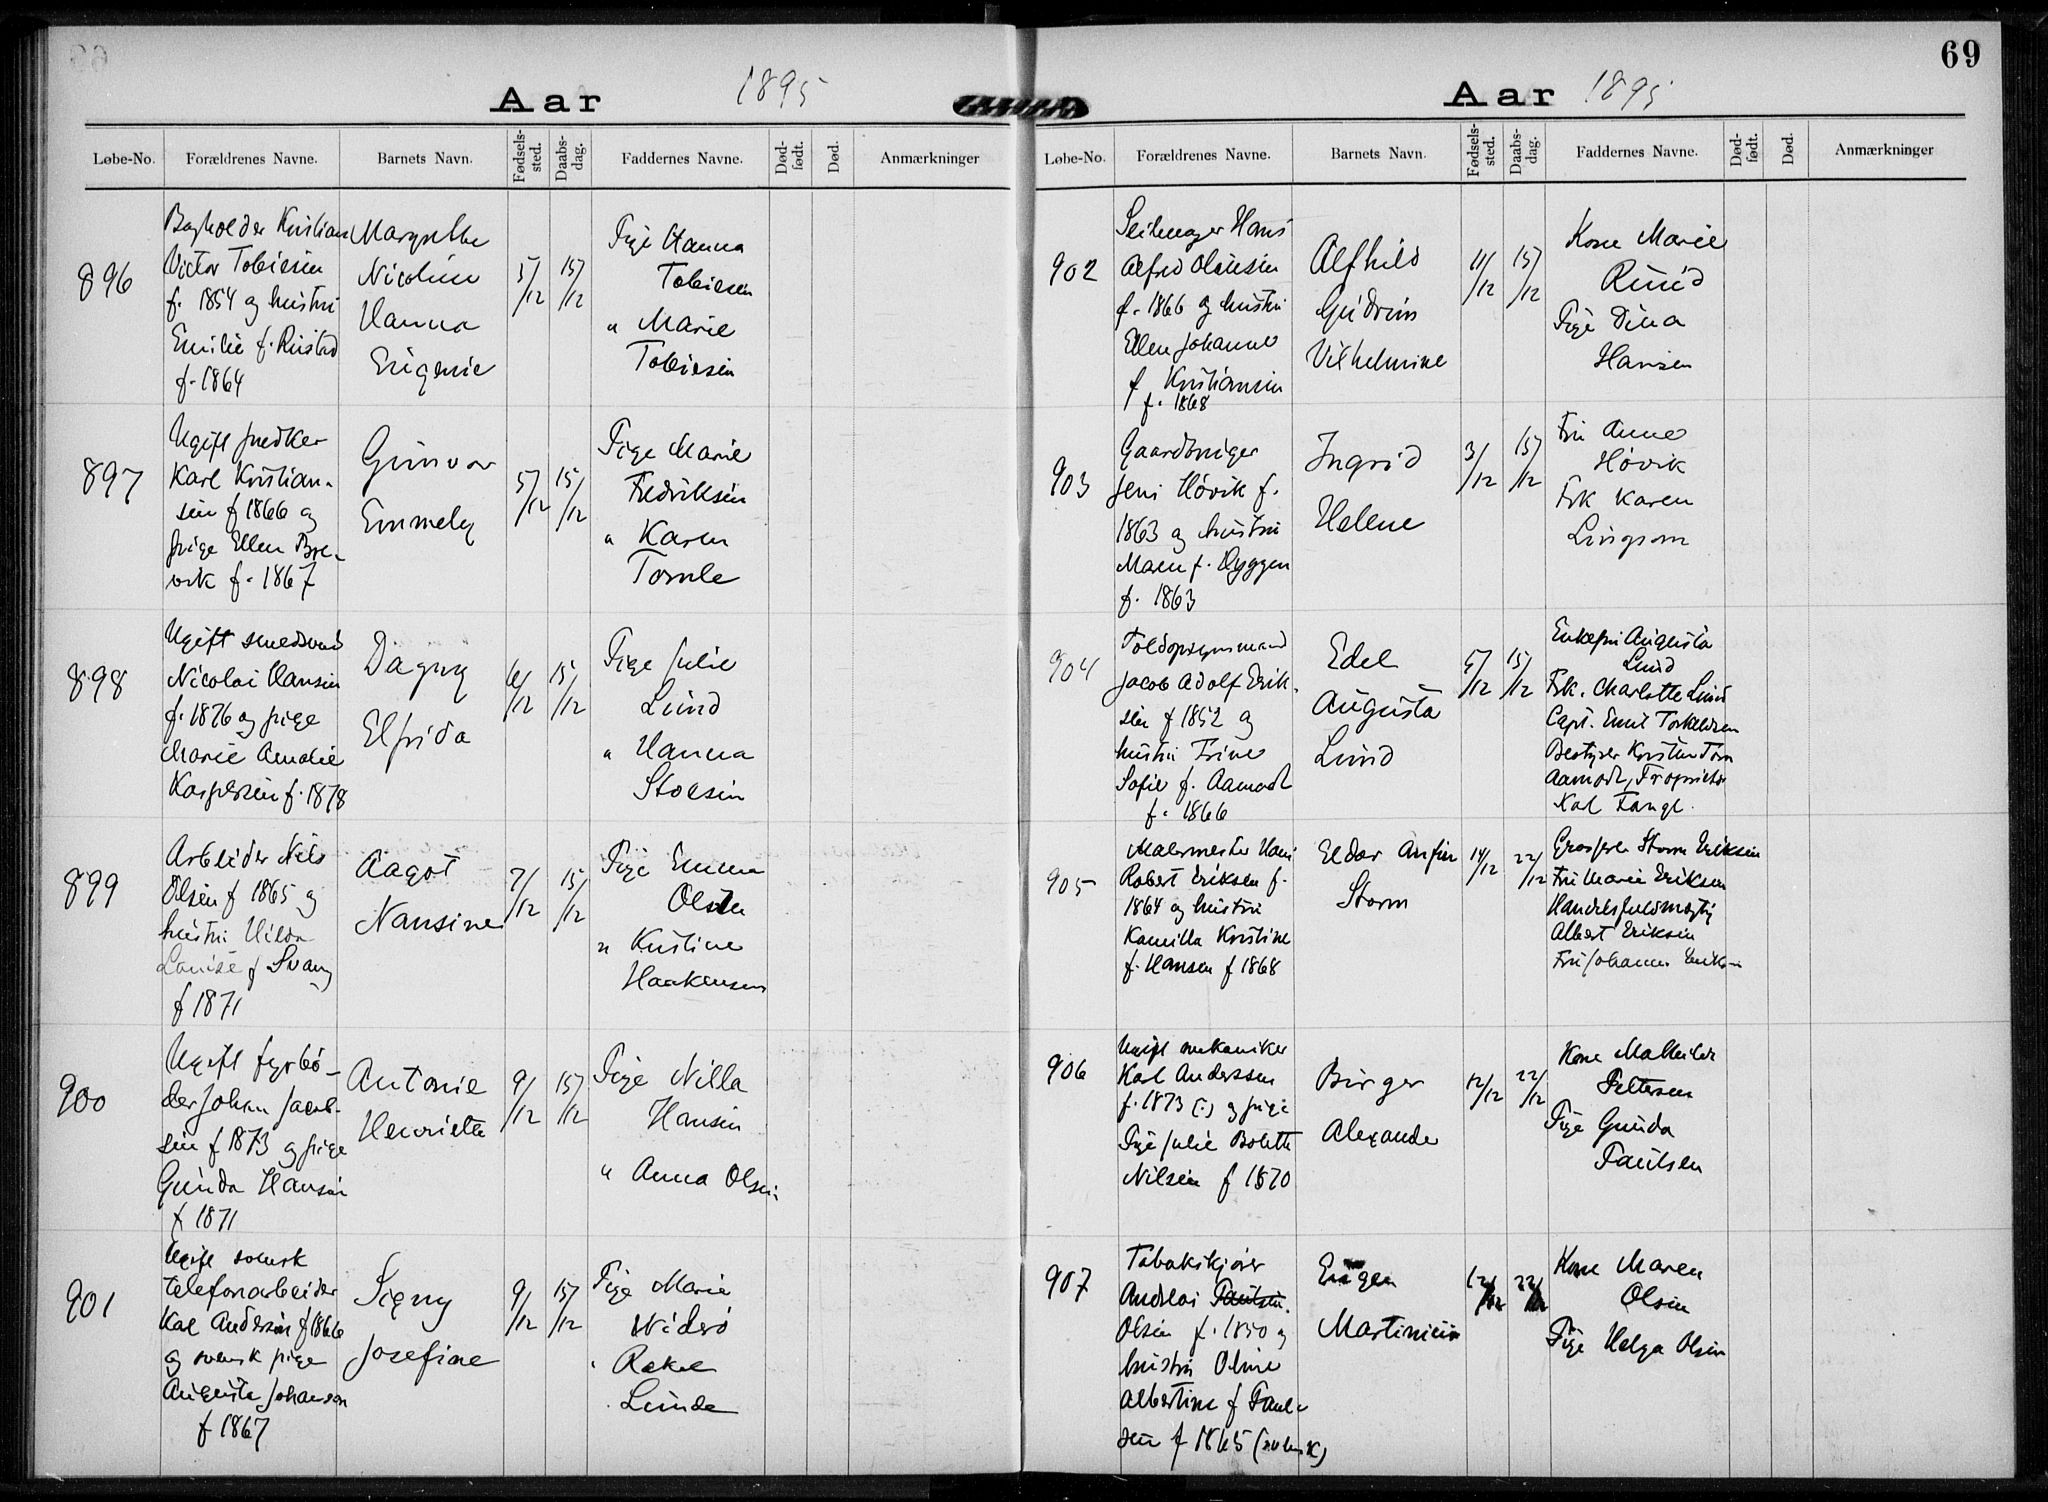 Aar 1895
Løbe-No.
Forældrenes Navne.
Barnets Navn.
Fødsels-
sted.
Daabs-
dag.
Faddernes Navne.
Død-
født.
Død.
Anmærkninger
896
Bogholder Kristian
Victor Tobiesen
f. 1854 og hustru
Emilie f. Rustad
f. 1864
Margrethe
Nicoline
Hanna
Eugenie
5/12
15/12
Pige Hanna
Tobiesen
" Marie
Tobiesen
897
Ugift snedker
Karl Kristian-
sen f 1866 og
pige Ellen Bre-
vik f. 1867
Gunvor
Emmely
5/12
15/12
Pige Marie
Fredriksen
" Karen
Tomle
898
Ugift smedsvend
Nicolai Hansen
f. 1876 og pige
Marie Amalie
Kaspersen f. 1878
Dagny
Elfrida
6/12
15/12
Pige Julie
Lund
" Hanna
Stoesen
899
Arbeider Nils
Olsen f 1865 og
hustru Hilda
Louise f Svang
f 1871
Aagot
Nansine
7/12
15/12
Pige Emma
Olsen
" Kristine
Haakensen
900
Ugift fyrbø-
der Johan Jacob-
sen f 1873 og pige
Gunda Hansen
f 1871
Antonie
Henriette
9/12
15/12
Pige Nilla
Hansen
" Anna Olsen
901
Ugift svensk
telefonarbeider
Karl Andersen f 1866
og svensk pige
Augusta Johansen
f 1867
Signy
Josefine
9/12
15/12
Pige Marie
Widerø
" Rakel
Lunde
69
Aar 1895
Løbe-No.
Forældrenes Navne.
Barnets Navn.
Fødsels-
sted.
Daabs-
dag.
Faddernes Navne.
Død-
født.
Død.
Anmærkninger
902
Seilmager Hans
Alfred Olausen
f. 1866 og hustru
Ellen Johanne
f Kristiansen
f. 1868
Alfhild
Gudrun
Vilhelmine
11/12
15/12
Kone Marie
Ruud
Pige Dina
Hansen
903
Gaardbruger
Jens Høvik f.
1863 og hustru
Maren f. Dyggen
f. 1863
Ingrid
Helene
3/12
15/12
Fru Anne
Høvik
Frk Karen
Lingsom
904
Toldopsynsmand
Jacob Adolf Erik-
sen f 1852 og
hustru Trine
Sofie f. Aamodt
f. 1866
Edel
Augusta
Lund
5/12
15/12
Enkefru Augusta
Lund
Frk. Charlotte Lund
Capt. Emil Torkildsen
Bestyrer Kristen Torn
Aamodt, Proprietær
Karl Fangl.
905
Malermester Hans
Robert Eriksen f.
1864 og hustru
Kamilla Kristine
f. Hansen f 1868
Eldar Anfin
Storm
14/12
22/12
Grosserer Storm Eriksen
Fru Marie Eriksen
Handelsfuldmægtig
Albert Eriksen
Fru Johanne Eriksen
906
Ugift mekaniker
Karl Anderssen
f. 1873 (:) og pige
Pige Julie Bolette
Nilsen f 1870
Birger
Alexander
12/12
22/12
Kone Mathilde
Pettersen
Pige Gunda
Paulsen
907
Tobakskjører
Andreas Paulsen.
Olsen f. 1850 og
hustru Oline
Albertine f Paul-
sen f 1865 (svensk)
Eugen
Martinius
12/12
22/12
Kone Maren
Olsen
Pige Helga Olsen